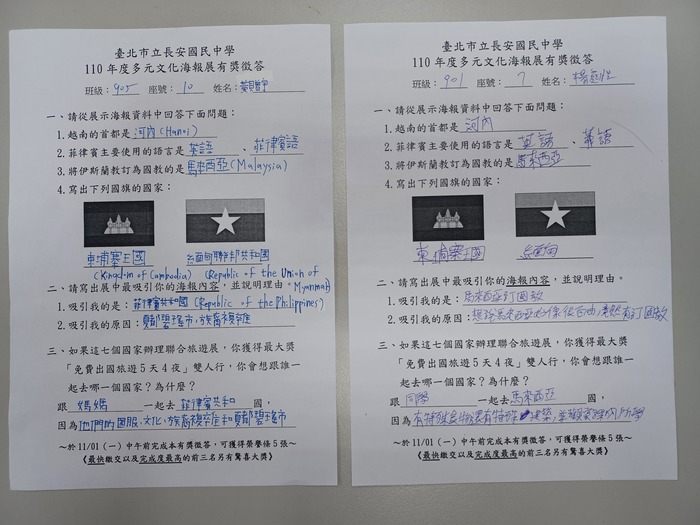 臺北市立長安國民中學
110 年度多元文化海報展有獎徵答
班級：905 座號：10 姓名：
一、請從展示海報資料中回答下面問題：
1.越南的首都是 河內(Hanoi)
2.菲律賓主要使用的語言是 英語 、菲律賓語
3.將伊斯蘭教訂為國教的是 馬來西亞(Malaysia)
4.寫出下列國旗的國家：
柬埔寨王國 緬甸聯邦共和國
(Kingdom of Cambodia) (Republic of the Union of Myanmar)
二、請寫出展中最吸引你的海報內容，並說明理由。
1.吸引我的是：菲律賓共和國(Republic of the Philippines)
2.吸引我的原因：夏都碧瑤市，族裔複雜
三、如果這七個國家辦理聯合旅遊展，你獲得最大獎
「免費出國旅遊 5 天 4 夜」雙人行，你會想跟誰一
起去哪一個國家？為什麼？
跟 媽媽 一起去 菲律賓共和 國，
因為 他們的國服、文化、族裔複雜和夏都碧瑤市
～於 11/01（一）中午前完成本有獎徵答，可獲得榮譽條 5 張～
《最快繳交以及完成度最高的前三名另有驚喜大獎》
臺北市立長安國民中學
110 年度多元文化海報展有獎徵答
班級：901 座號：7 姓名：
一、請從展示海報資料中回答下面問題：
1.越南的首都是 河內
2.菲律賓主要使用的語言是 英語 、
3.將伊斯蘭教訂為國教的是 馬來西亞
4.寫出下列國旗的國家：
柬埔寨王國 緬甸
二、請寫出展中最吸引你的海報內容，並說明理由。
1.吸引我的是：馬來西亞訂國教
2.吸引我的原因：馬來西亞 自由，竟然有訂國教
三、如果這七個國家辦理聯合旅遊展，你獲得最大獎
「免費出國旅遊 5 天 4 夜」雙人行，你會想跟誰一
起去哪一個國家？為什麼？
跟 同學 一起去 馬來西亞 國，
因為 有特殊食物還有特殊建築，
～於 11/01（一）中午前完成本有獎徵答，可獲得榮譽條 5 張～
《最快繳交以及完成度最高的前三名另有驚喜大獎》